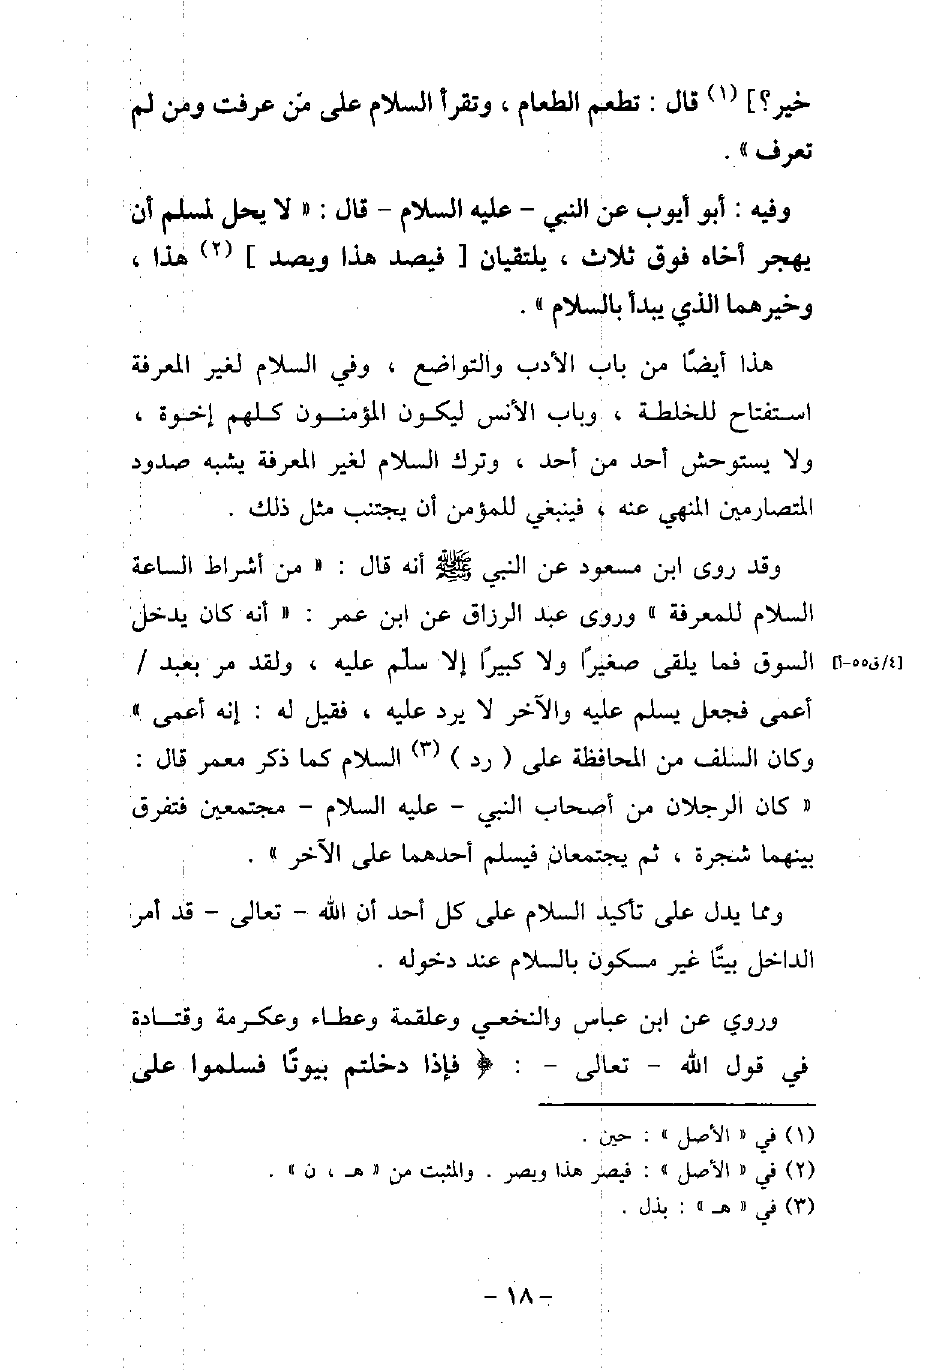 خير؟] (١) قال : تطعم الطعام ، وتقرأ السلام على مَن عرفت ومن لم
تعرف » .
وفيه : أبو أيوب عن النبي - عليه السلام - قال : « لا يحل لمسلم أن
يهجر أخاه فوق ثلاث ، يلتقيان [ فيصد هذا ويصد ] (٢) هذا ،
وخيرهما الذي يبدأ بالسلام » .
هذا أيضًا من باب الأدب والتواضع ، وفي السلام لغير المعرفة
استفتاح للخلطة ، وباب الأنس ليكون المؤمنون كلهم إخوة ،
ولا يستوحش أحد من أحد ، وترك السلام لغير المعرفة يشبه صدود
المتصارمين المنهي عنه ، فينبغي للمؤمن أن يجتنب مثل ذلك .
وقد روى ابن مسعود عن النبي ﷺ أنه قال : « من أشراط الساعة
السلام للمعرفة » وروى عبد الرزاق عن ابن عمر : « أنه كان يدخل
السوق فما يلقى صغيرًا ولا كبيرًا إلا سلّم عليه ، ولقد مر بعبد / [٤/ق٥٥-أ]
أعمى فجعل يسلم عليه والآخر لا يرد عليه ، فقيل له : إنه أعمى »
وكان السلف من المحافظة على ( رد ) (٣) السلام كما ذكر معمر قال :
« كان الرجلان من أصحاب النبي - عليه السلام - مجتمعين فتفرق
بينهما شجرة ، ثم يجتمعان فيسلم أحدهما على الآخر » .
ومما يدل على تأكيد السلام على كل أحد أن الله - تعالى - قد أمر
الداخل بيتًا غير مسكون بالسلام عند دخوله .
وروي عن ابن عباس والنخعي وعلقمة وعطاء وعكرمة وقتادة
في قول الله - تعالى - : ﴿ فإذا دخلتم بيوتًا فسلموا على
(١) في « الأصل » : حين .
(٢) في « الأصل » : فيصر هذا ويصر . والمثبت من « هـ ، ن » .
(٣) في « هـ » : بذل .
- ١٨ -